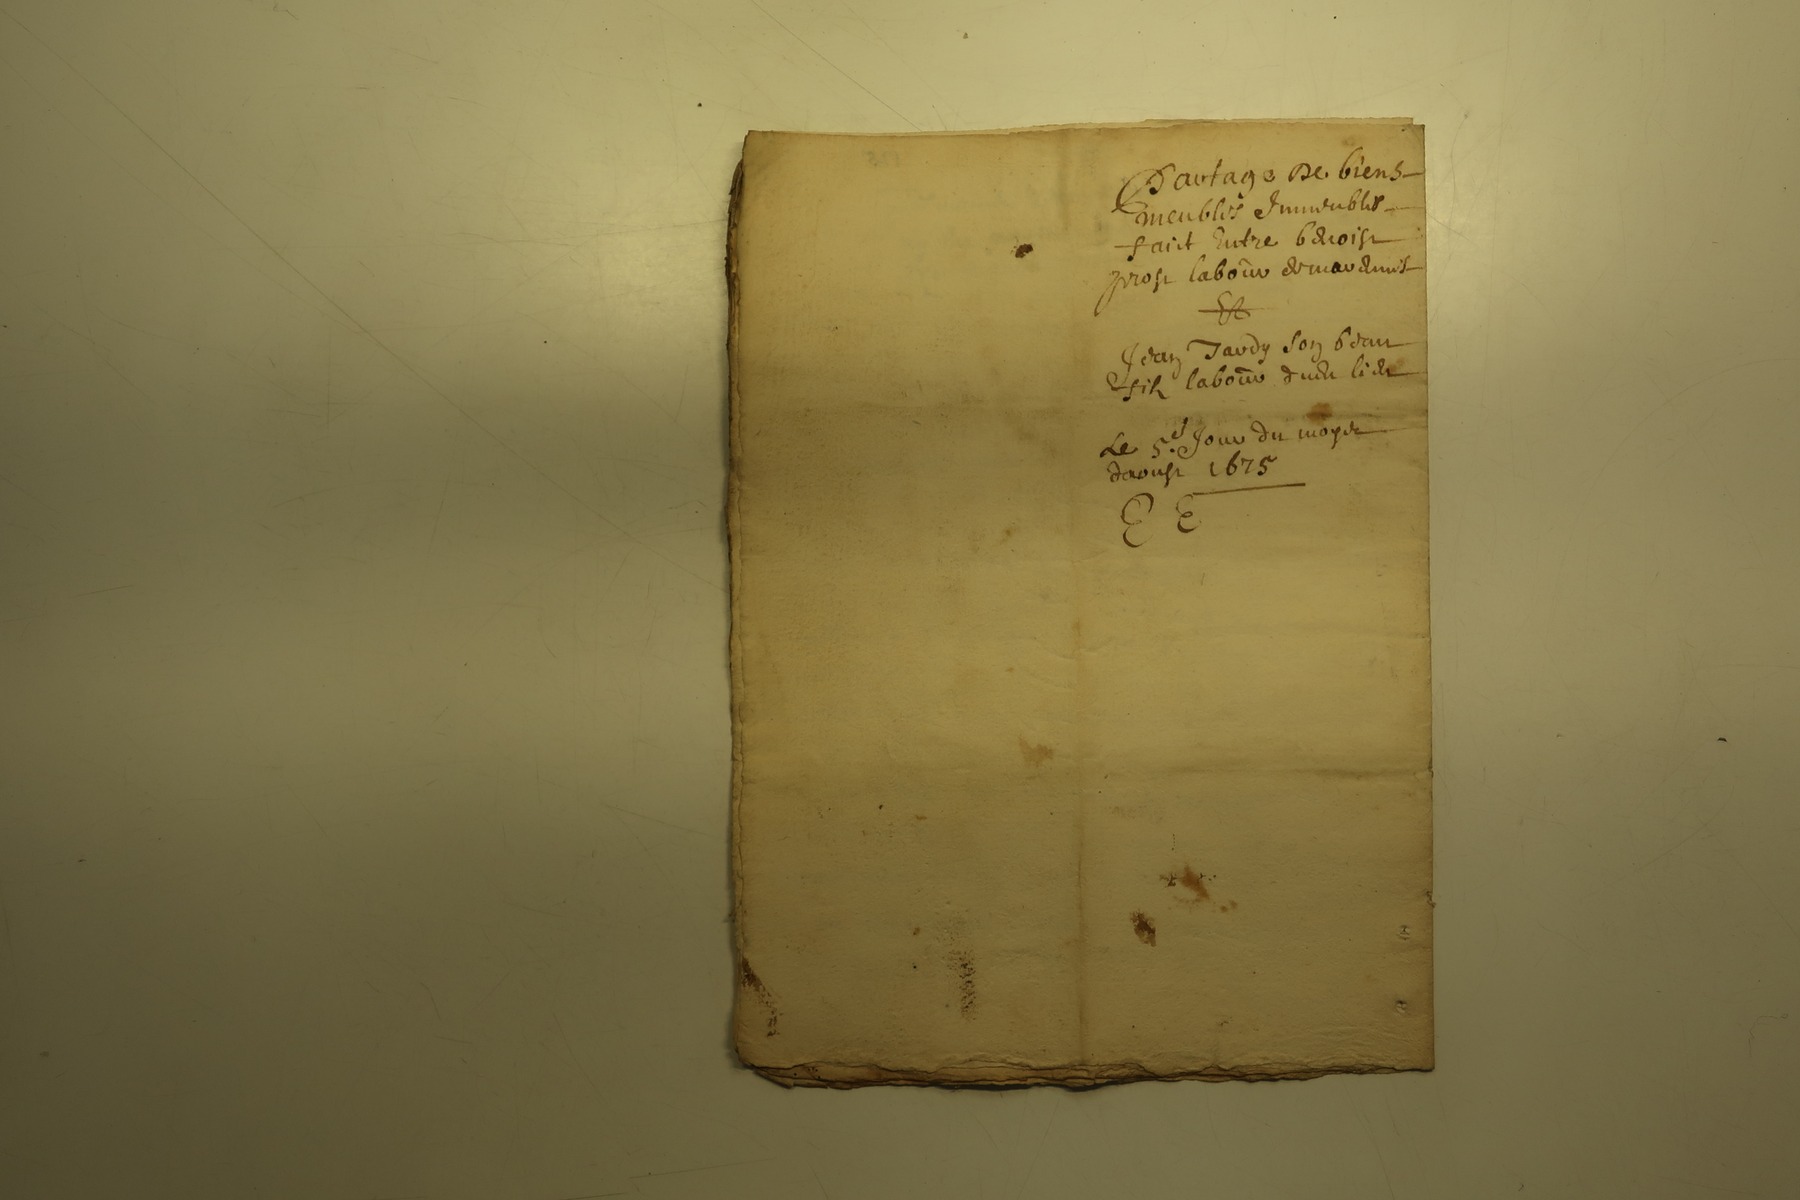 Partage De biens
meubles Immeubles
faict Entre benoist
prost labour de mardenis
Et
Jean Tardy son beau
filz labour dudt lieu
Le 5.e Jour du moys
daoust 1675
E E